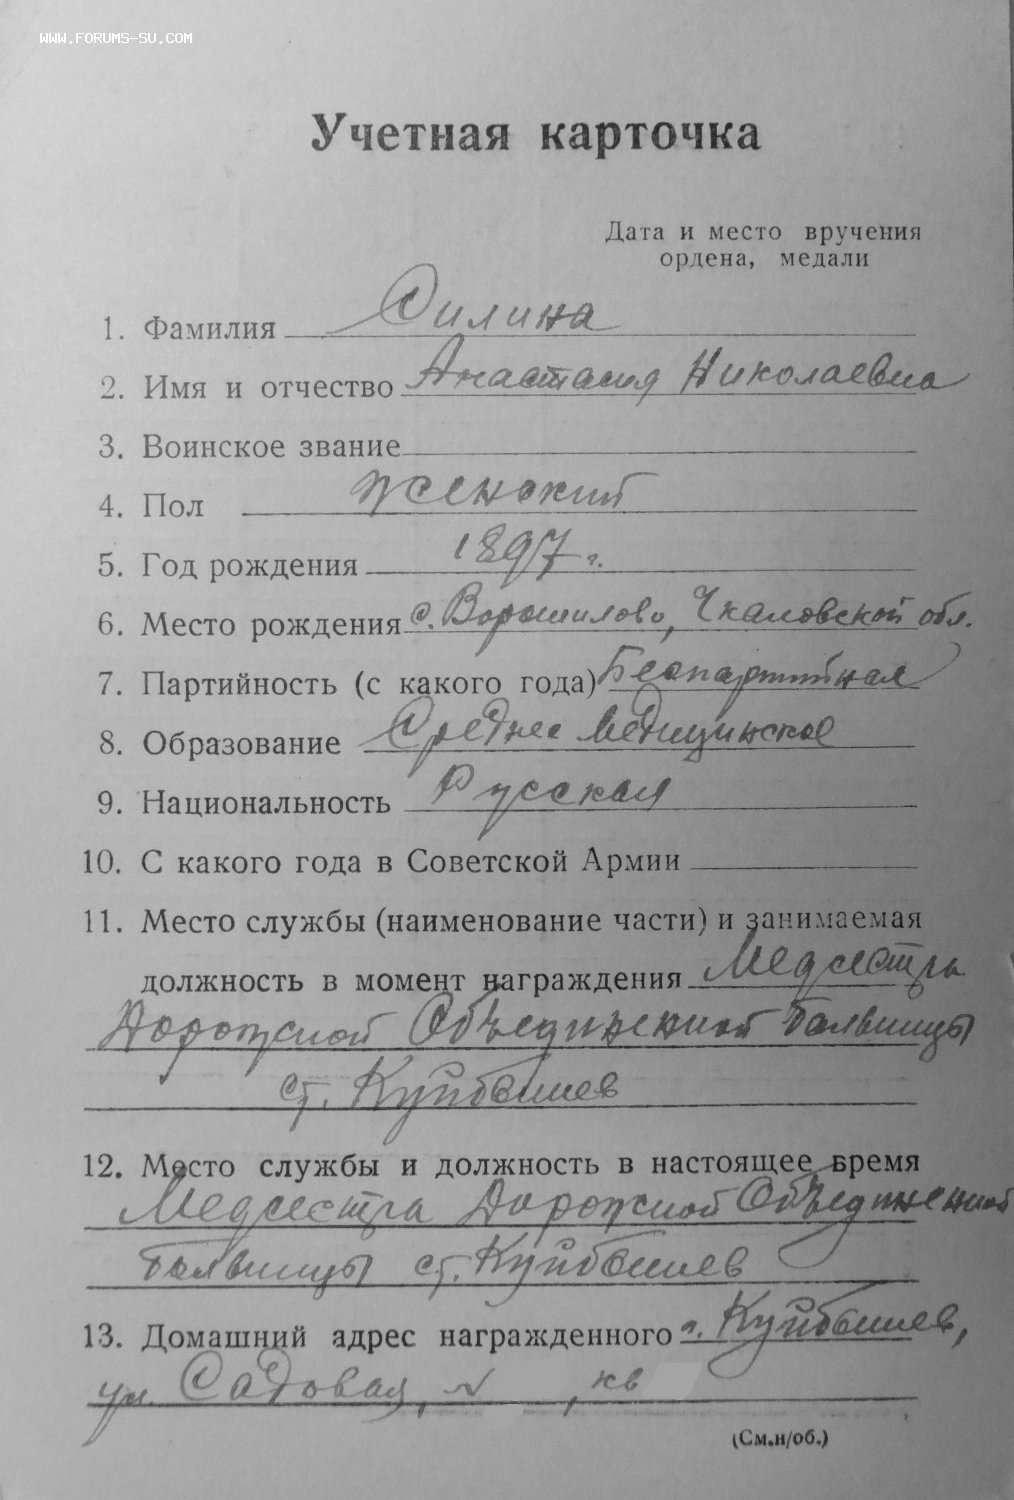 WWW.FORUMS-SU.COM
Учетная карточка
Дата и место вручения
ордена, медали
1. Фамилия Силина
2. Имя и отчество Анастасия Николаевна
3. Воинское звание
4. Пол женский
5. Год рождения 1897 г.
6. Место рождения с. Ворошилово, Чкаловской обл.
7. Партийность (с какого года) Беспартийная
8. Образование Среднее медицинское
9. Национальность Русская
10. С какого года в Советской Армии
11. Место службы (наименование части) и занимаемая
должность в момент награждения Медсестра
Дорожной Объединенной больницы
ст. Куйбышев
12. Место службы и должность в настоящее время
Медсестра Дорожной Объединенной
больницы ст. Куйбышев
13. Домашний адрес награжденного г. Куйбышев,
ул. Садовая, № , кв
(См.н/об.)